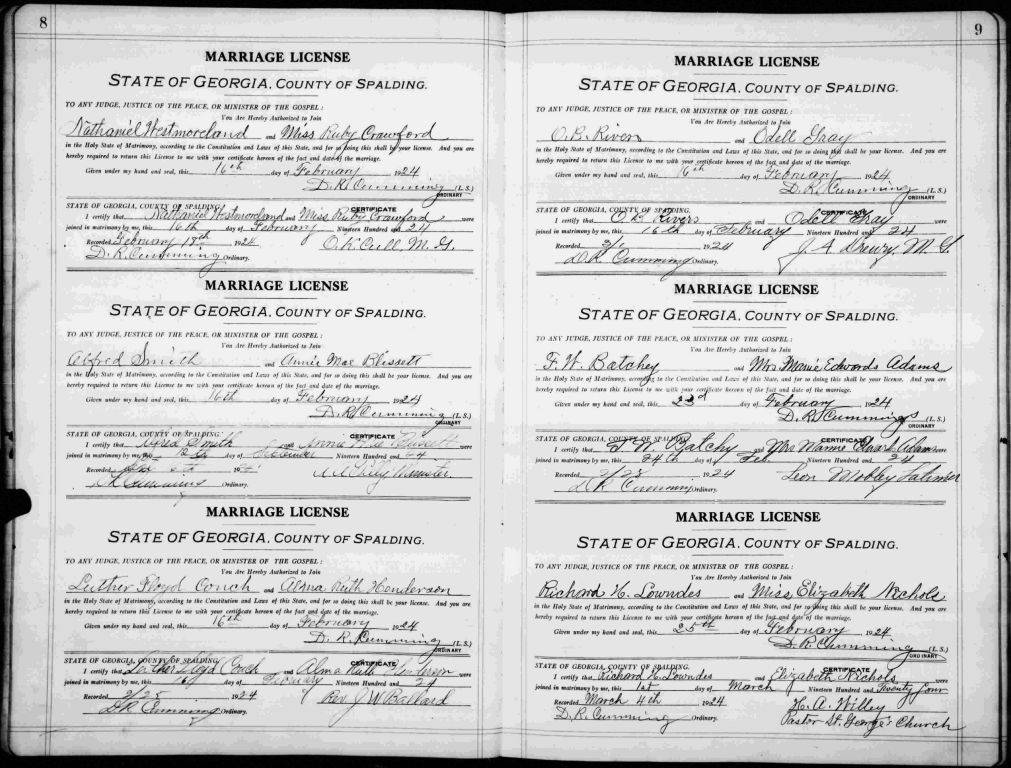 8
MARRIAGE LICENSE
STATE OF GEORGIA, COUNTY OF SPALDING.
TO ANY JUDGE, JUSTICE OF THE PEACE, OR MINISTER OF THE GOSPEL:
You Are Hereby Authorized to Join
Nathaniel Westmoreland and Miss Ruby Crawford
in the Holy State of Matrimony, according to the Constitution and Laws of this State, and for so doing this shall be your license. And you are
hereby required to return this License to me with your certificate hereon of the fact and date of the marriage.
Given under my hand and seal, this 16th day of February 1924
D. R. Cumming (L. S.)
ORDINARY
STATE OF GEORGIA, COUNTY OF SPALDING. CERTIFICATE
I certify that Nathaniel Westmoreland and Miss Ruby Crawford were
joined in matrimony by me, this 16th day of February Nineteen Hundred and 24
Recorded February 18th 1924 M. G.
D. R. Cumming Ordinary.
MARRIAGE LICENSE
STATE OF GEORGIA, COUNTY OF SPALDING.
TO ANY JUDGE, JUSTICE OF THE PEACE, OR MINISTER OF THE GOSPEL:
You Are Hereby Authorized to Join
Alfred Smith and Annie Mae Blissett
in the Holy State of Matrimony, according to the Constitution and Laws of this State, and for so doing this shall be your license. And you are
hereby required to return this License to me with your certificate hereon of the fact and date of the marriage.
Given under my hand and seal, this 16th day of February 1924
D. R. Cumming (L. S.)
ORDINARY
STATE OF GEORGIA, COUNTY OF SPALDING. CERTIFICATE
I certify that Alfred Smith and Annie Mae were
joined in matrimony by me, this day of Nineteen Hundred and
Recorded 19
Ordinary.
MARRIAGE LICENSE
STATE OF GEORGIA, COUNTY OF SPALDING.
TO ANY JUDGE, JUSTICE OF THE PEACE, OR MINISTER OF THE GOSPEL:
You Are Hereby Authorized to Join
Luther Floyd Couch and Alma Ruth Henderson
in the Holy State of Matrimony, according to the Constitution and Laws of this State, and for so doing this shall be your license. And you are
hereby required to return this License to me with your certificate hereon of the fact and date of the marriage.
Given under my hand and seal, this 16th day of February 1924
D. R. Cumming (L. S.)
ORDINARY
STATE OF GEORGIA, COUNTY OF SPALDING. CERTIFICATE
I certify that Luther Floyd Couch and Alma Ruth Henderson were
joined in matrimony by me, this day of February Nineteen Hundred and 24
Recorded 2/28 1924 Rev J W Ballard
D R Cumming Ordinary.
9
MARRIAGE LICENSE
STATE OF GEORGIA, COUNTY OF SPALDING.
TO ANY JUDGE, JUSTICE OF THE PEACE, OR MINISTER OF THE GOSPEL:
You Are Hereby Authorized to Join
O. B. Rivers and Odell Gray
in the Holy State of Matrimony, according to the Constitution and Laws of this State, and for so doing this shall be your license. And you are
hereby required to return this License to me with your certificate hereon of the fact and date of the marriage.
Given under my hand and seal, this 16th day of February 1924
D. R. Cumming (L. S.)
ORDINARY
STATE OF GEORGIA, COUNTY OF SPALDING. CERTIFICATE
I certify that O B Rivers and Odell Gray were
joined in matrimony by me, this 16th day of February Nineteen Hundred and 24
Recorded 3/1 1924 J. A. Drewry, M. G.
D. R. Cumming Ordinary.
MARRIAGE LICENSE
STATE OF GEORGIA, COUNTY OF SPALDING.
TO ANY JUDGE, JUSTICE OF THE PEACE, OR MINISTER OF THE GOSPEL:
You Are Hereby Authorized to Join
F. W. Batchey and Mrs. Mamie Edwards Adams
in the Holy State of Matrimony, according to the Constitution and Laws of this State, and for so doing this shall be your license. And you are
hereby required to return this License to me with your certificate hereon of the fact and date of the marriage.
Given under my hand and seal, this 23d day of February 1924
D. R. Cummings (L. S.)
ORDINARY
STATE OF GEORGIA, COUNTY OF SPALDING. CERTIFICATE
I certify that F W Batchy and Mrs Mamie Adams were
joined in matrimony by me, this 24th day of Feb Nineteen Hundred and 24
Recorded 2/28 1924 Leon Mobley Latimer
D R Cumming Ordinary.
MARRIAGE LICENSE
STATE OF GEORGIA, COUNTY OF SPALDING.
TO ANY JUDGE, JUSTICE OF THE PEACE, OR MINISTER OF THE GOSPEL:
You Are Hereby Authorized to Join
Richard H. Lowndes and Miss Elizabeth Nichols
in the Holy State of Matrimony, according to the Constitution and Laws of this State, and for so doing this shall be your license. And you are
hereby required to return this License to me with your certificate hereon of the fact and date of the marriage.
Given under my hand and seal, this 25th day of February 1924
D. R. Cumming (L. S.)
ORDINARY
STATE OF GEORGIA, COUNTY OF SPALDING. CERTIFICATE
I certify that Richard H. Lowndes and Elizabeth Nichols were
joined in matrimony by me, this 1st day of March Nineteen Hundred and Twenty four
Recorded March 4th 1924 H. A. Willey
D. R. Cumming Ordinary. Pastor St. George's Church